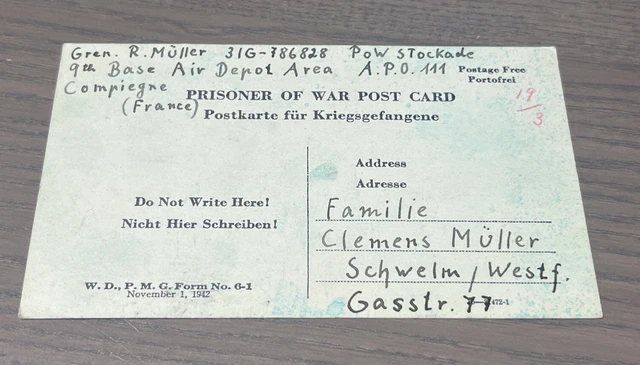 Gren. R. Müller 31G-786828 PoW Stockade
9th Base Air Depot Area A.P.O. 111
Postage Free
Portofrei
Compiegne
(France)
PRISONER OF WAR POST CARD
Postkarte für Kriegsgefangene
19/3
Address
Adresse
Do Not Write Here!
Nicht Hier Schreiben!
Familie
Clemens Müller
Schwelm / Westf.
Gasstr. 77
W. D., P. M. G. Form No. 6-1
November 1, 1942